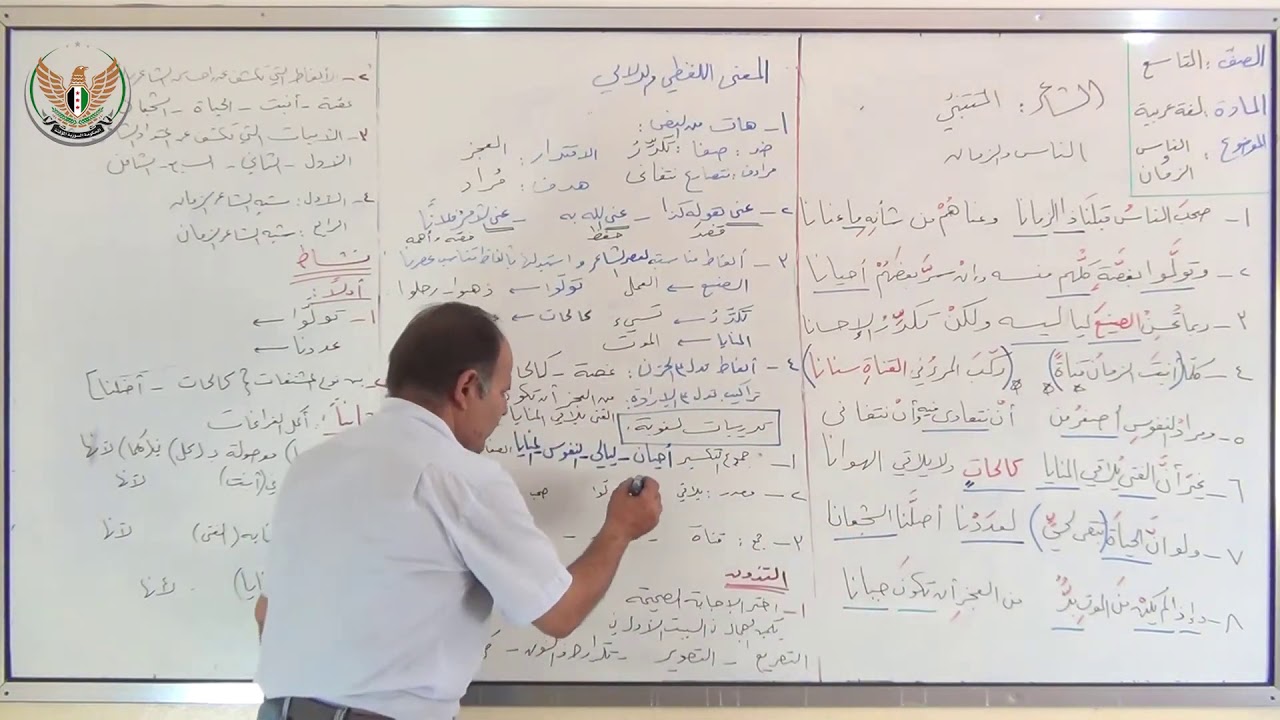 الصف : التاسع
المادة : اللغة عربية
الموضوع : الناس والزمان
الشاعر : المتنبي
الناس والزمان
١- صحب الناسُ قبلَنا ذا الزمانا وعناهُمْ من شأنِهِ ما عنانا
٢- وتولَّوا بغصَّةٍ كلُّهم منه وإنْ سرَّ بعضَهُمْ أحيانا
٣- ربما تُحسِنُ الصنيعَ لياليه ولكنْ تكدِّرُ الإحسانا
٤- كلّما (أنبتَ الزمانُ قناةً) (ركّبَ المرءُ في القناةِ سنانا)
٥- ومرادُ النفوسِ أصغرُ من أنْ نتعادى فيه وأنْ نتفانى
٦- غيرَ أنَّ الفتى يُلاقي المنايا كالحاتٍ ولا يلاقي الهوانا
٧- ولو انَّ الحياةَ (تبقى لحيٍّ) لعددْنا أضلَّنا الشجعانا
٨- وإذا لم يكنْ منَ الموتِ بدٌّ فمن العجزِ أن تكونَ جبانا
المعنى اللفظي والدلالي
١- هات من النص :
ضد : صفا : تكدّرُ الاقتدار : العجز
مرادف : نتصارع نتفانى هدف : مُراد
٢- عنى هو له كذا - عنى الله به - عنى بالأمر فلاناً
قصد حفظ
٣- ألفاظ مناسبة لعصر الشاعر واستبدلها بألفاظ تناسب عصرنا
الصنيع ← العمل تولّوا ← ذهبوا - رحلوا
تكدّرُ ← تسيء كالحات ←
المنايا ← الموت
٤- ألفاظ تدل على الحزن : غصة -
تراكيب تدل على الإرادة : من العجز أن تكو
الفتى يلاقي المنايا
تدريبات لغوية :
١- جموع التكسير أحيان - ليالي - النفوس - المنايا
٢- مصدر : يلاقي
٣- جمع : قناة
التذوق
١- اختر الإجابة الصحيحة
تكمن الجمال في البيت الأول في
التصريع - التصوير - تكرار حرف النون -
٢- الألفاظ التي تكشف عن
غصة - أنبت - الحياة -
٣- الأبيات التي تكشف عن
الأول - الثاني - السابع - الثامن
٤- الأول : شبه الشاعر الزمان
الرابع : شبه الشاعر الزمان
نشاط
أولاً :
١- تولّوا ←
عددنا ←
نوع المشتقات {كالحات - أضلنا]
ثانياً : أملأ الفراغات
لأنها
(أنبت) لأنها
(الفتى) لأنها
لأنها